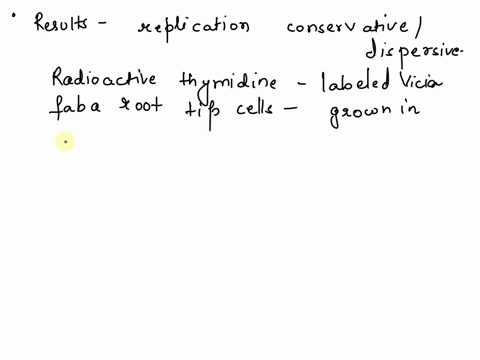 • Results - replication conservative/
dispersive.
Radioactive thymidine - labeled Vicia
faba root tip cells - grown in